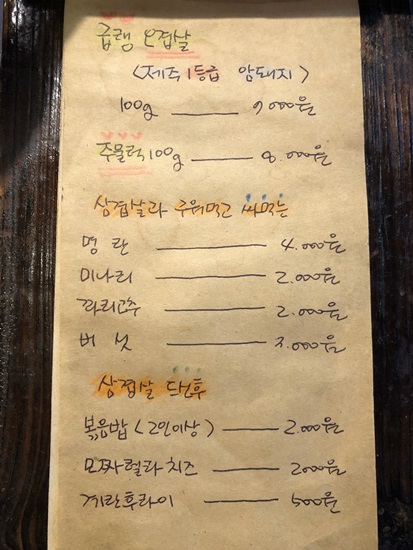 급랭 오겹살
<제주 1등급 암퇘지>
100g ——— 9.000원
주물럭 100g ——— 8.000원
삼겹살과 구워먹고 싸먹는
명란 ——— 4.000원
미나리 ——— 2.000원
꽈리고추 ——— 2.000원
버섯 ——— 3.000원
삼겹살 드신후
볶음밥 (2인이상) ——— 2.000원
모짜렐라 치즈 ——— 2000원
계란후라이 ——— 500원